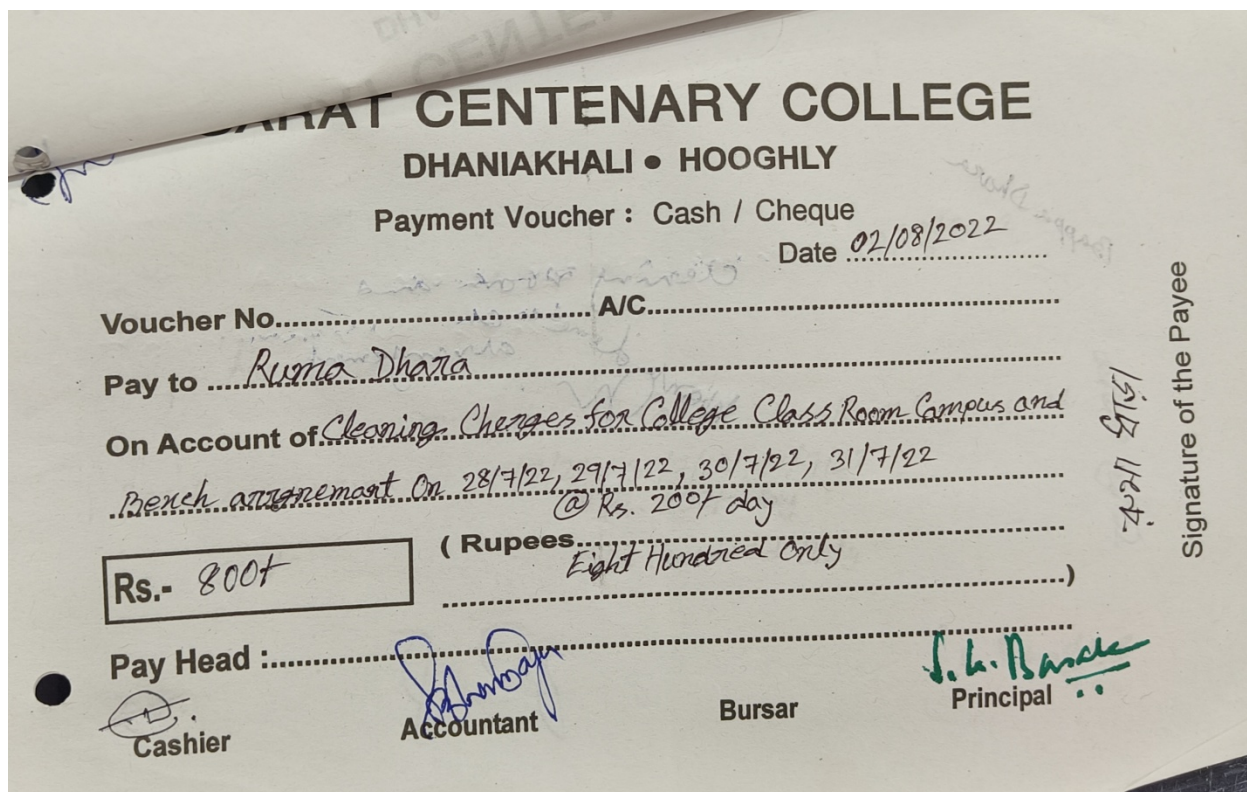 CENTENARY COLLEGE
DHANIAKHALI • HOOGHLY
Payment Voucher : Cash / Cheque
Date 02/08/2022
Voucher No. A/C.
Pay to Ruma Dhara
On Account of Cleaning Cherges for College Class Room Campus and
Bench On 28/7/22, 29/7/22, 30/7/22, 31/7/22
@ Rs. 200/- day
Rs.- 800/-
( Rupees
Eight Hundred Only
)
Pay Head :
S. K. Basak
Cashier Accountant Bursar Principal
রুমা ধাড়া
Signature of the Payee